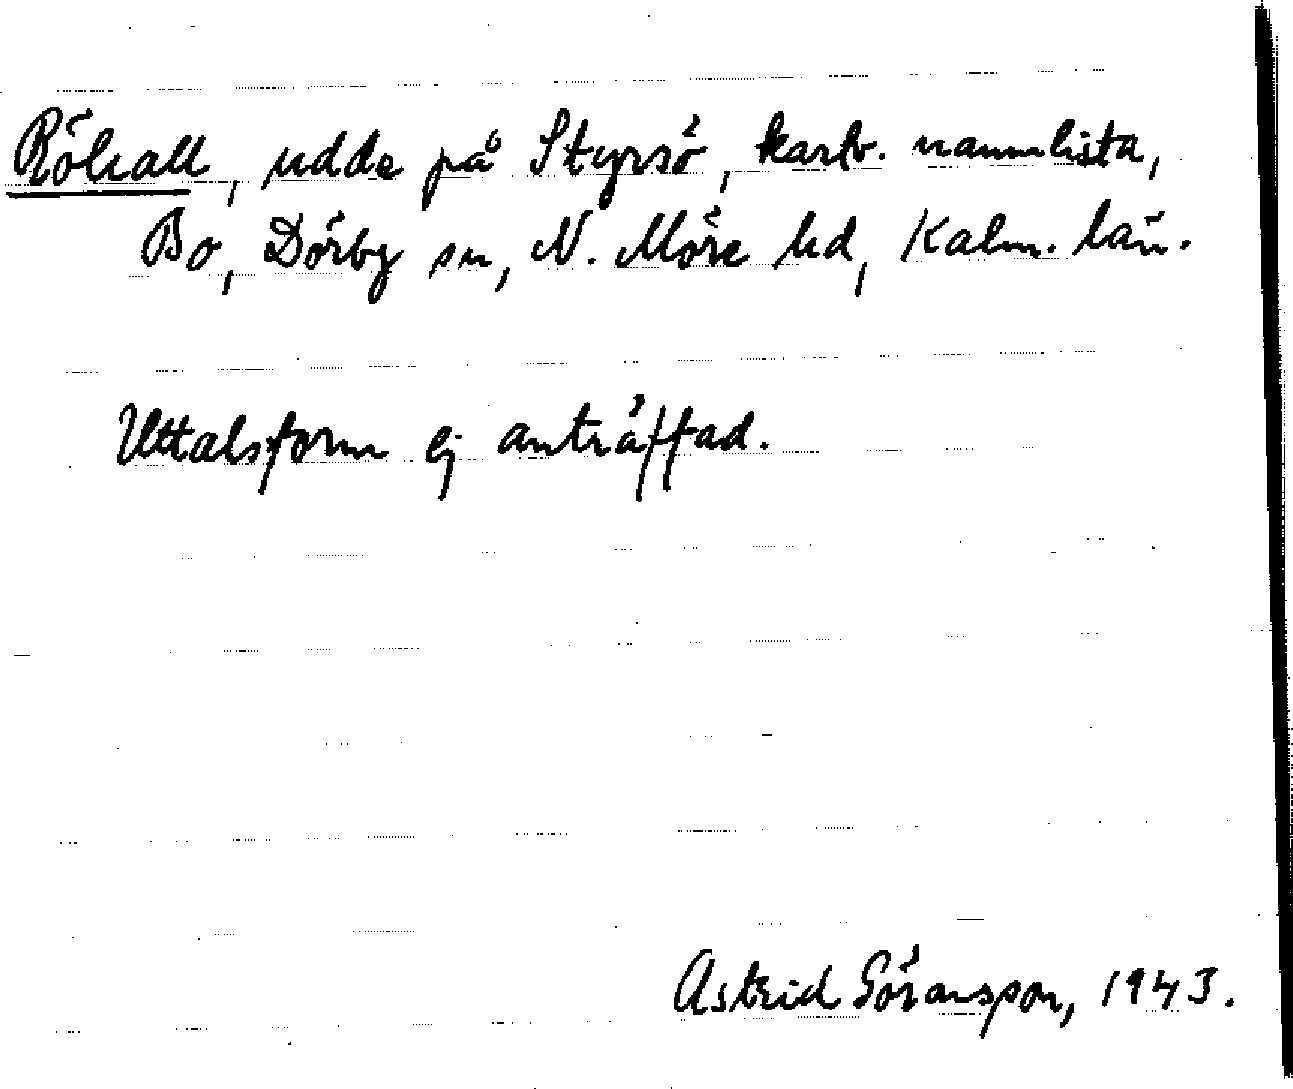 Rökall, udde på Styrsö, kartv. namnlista,
Bo, Dörby sn, N. Möre hd, Kalm. län.
Uttalsform ej anträffad.
Astrid Göransson, 1943.